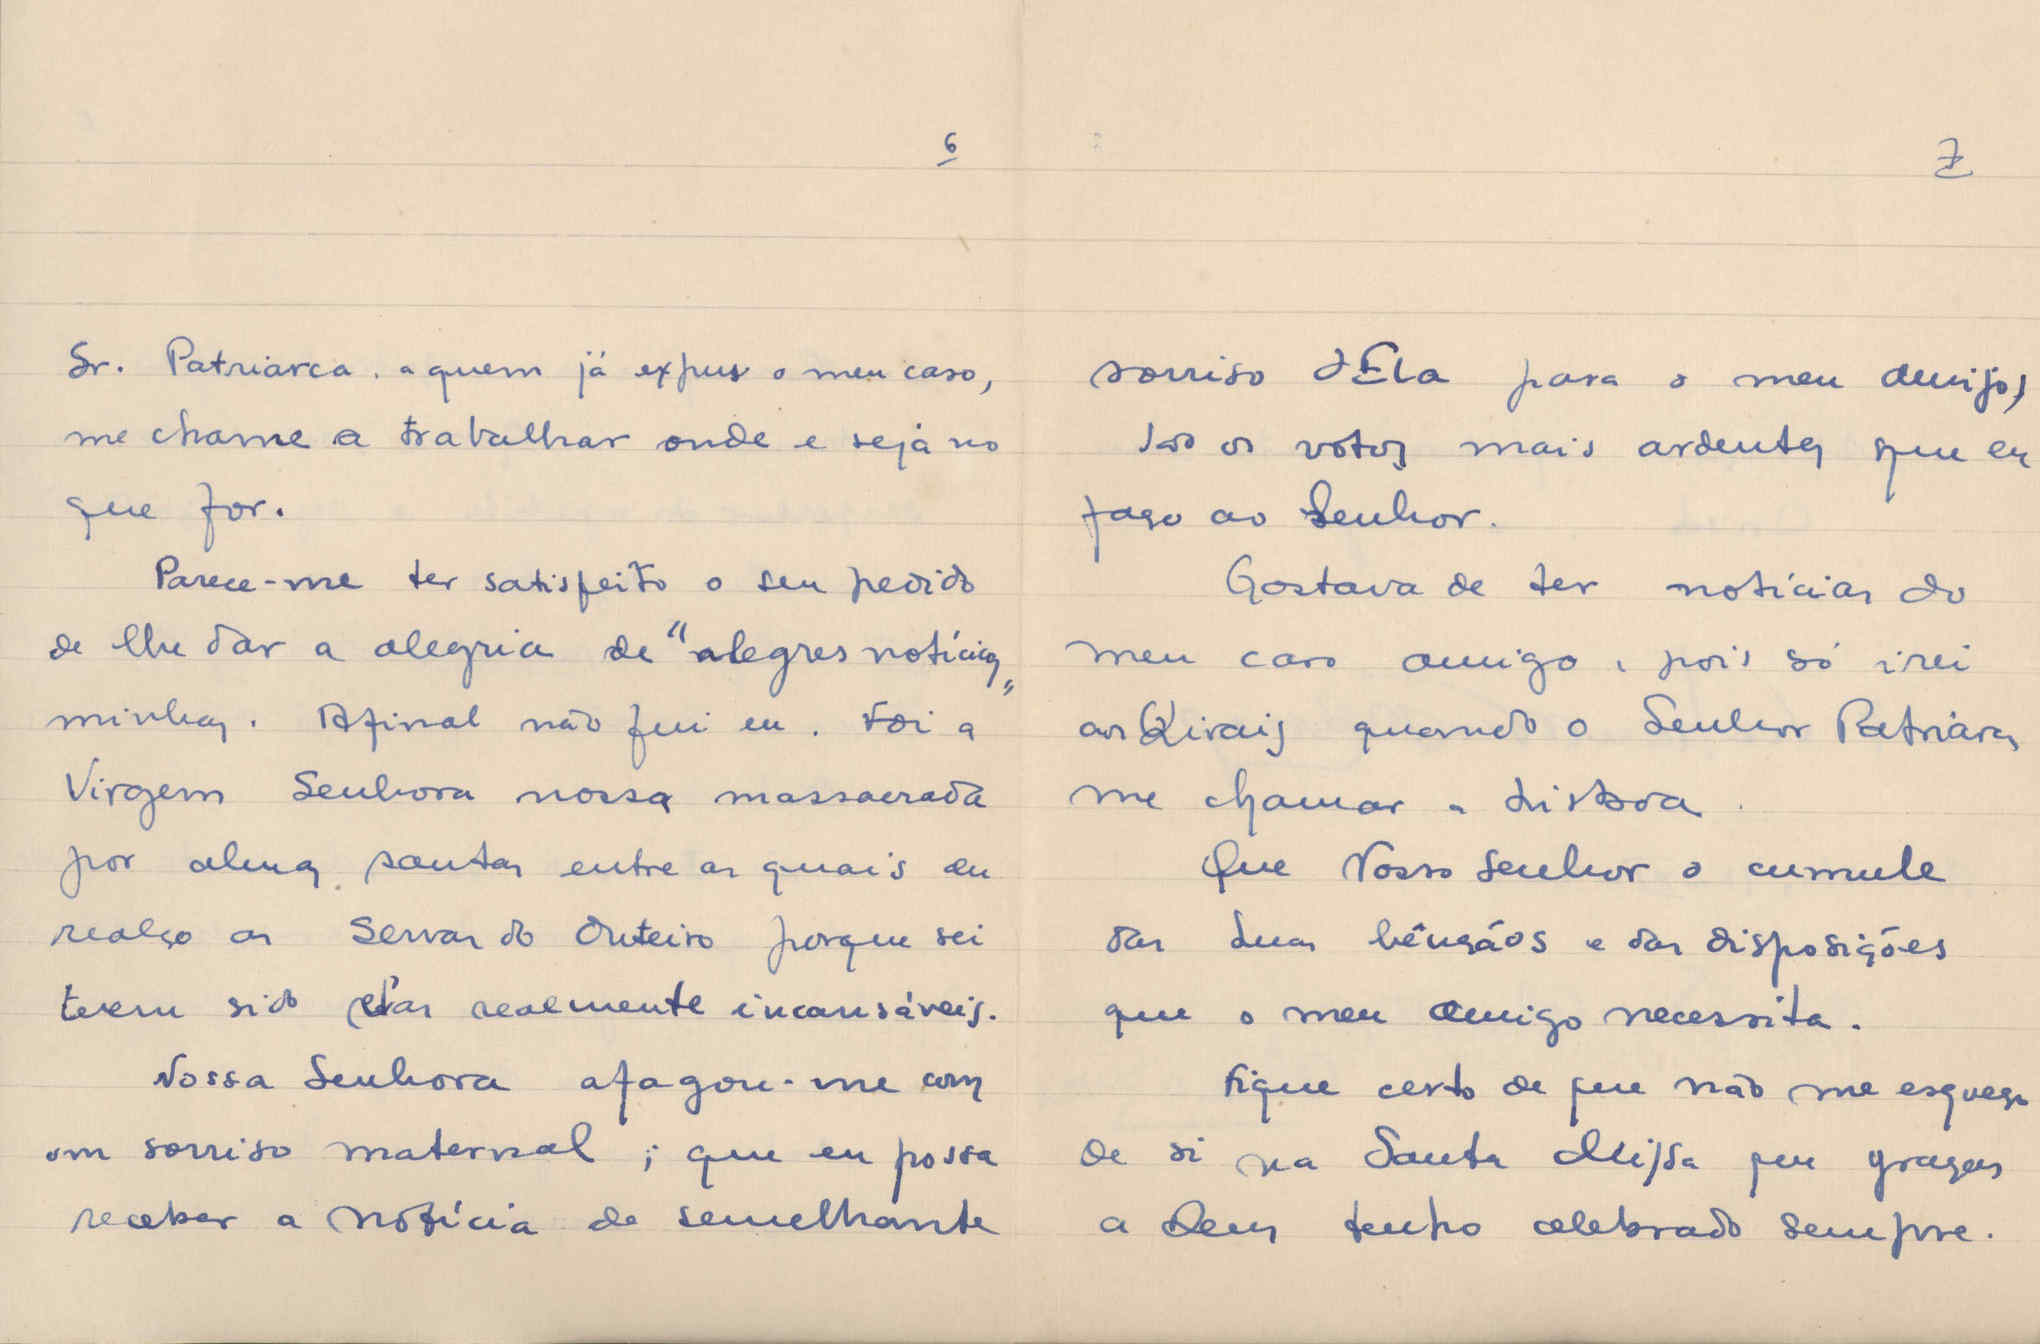 6
Sr. Patriarca, a quem já expus o meu caso,
me chame a trabalhar onde e seja no
que for.
Parece-me ter satisfeito o seu pedido
de lhe dar a alegria de "alegres notícias"
minhas. Afinal não fui eu. Foi a
Virgem Senhora nossa massacrada
por almas santas entre as quais eu
realço as Servas do Outeiro porque sei
terem sido elas realmente incansáveis.
Nossa Senhora afagou-me com
um sorriso maternal; que eu possa
receber a notícia de semelhante
7
sorriso dEla para o meu amigo,
são os votos mais ardentes que eu
faço ao Senhor.
Gostava de ter notícias do
meu caro amigo, pois só irei
aos quando o Senhor Patriarca
me chamar a Lisboa.
Que Nosso Senhor o cumule
das suas bênçãos e das disposições
que o meu amigo necessita.
Fique certo de que não me esqueço
de si na Santa Missa que graças
a Deus tenho celebrado sempre.